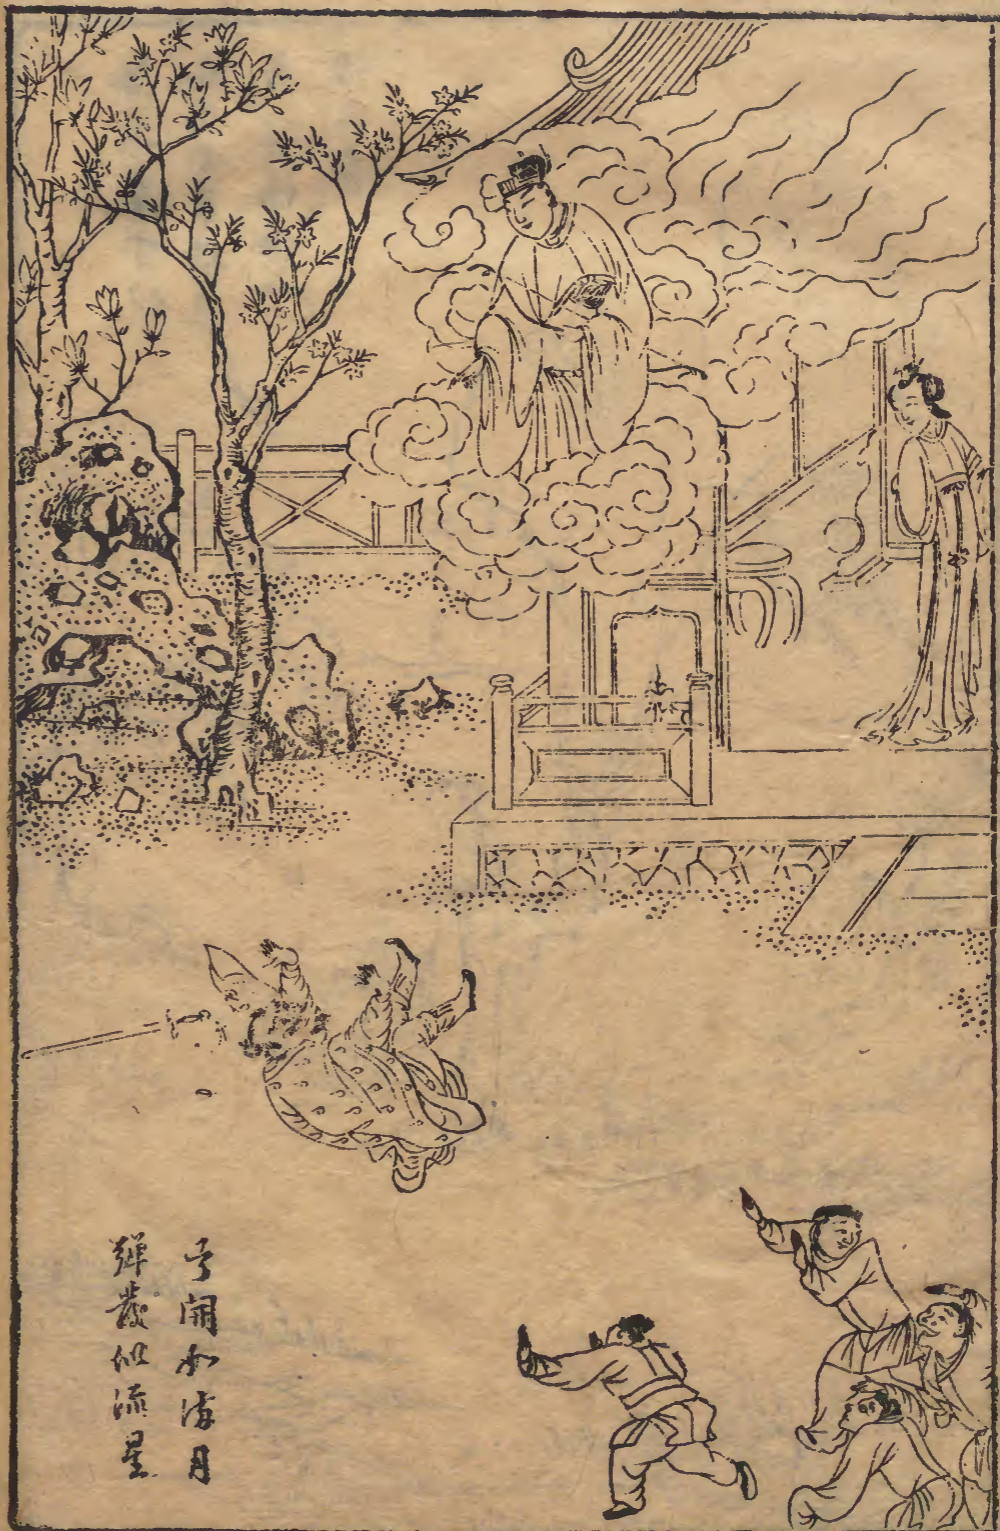 弓開如滿月
彈發似流星